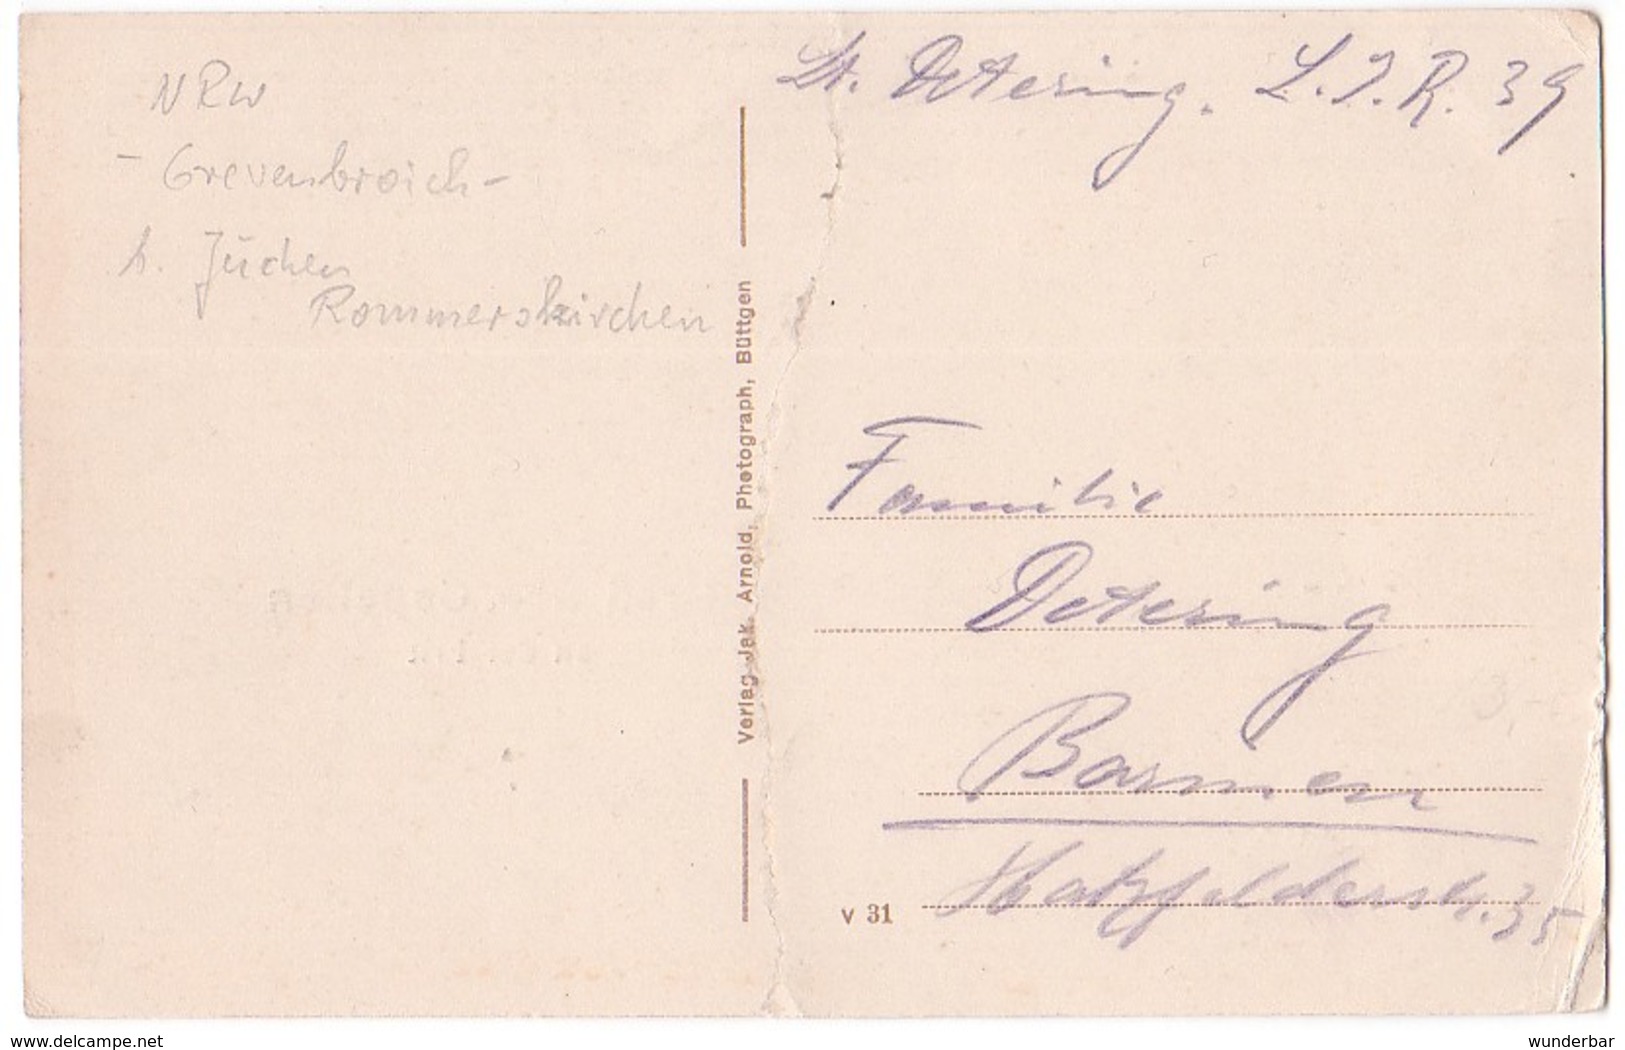 NRW
- Grevenbroich -
b. Jüchen
Rommerskirchen
Verlag Jak. Arnold, Photograph, Büttgen
Lt. Detering. L.I.R. 39
Familie
Detering
Barmen
Hatzfelderstr. 35
V 31
3,-
www.delcampe.net
wunderbar